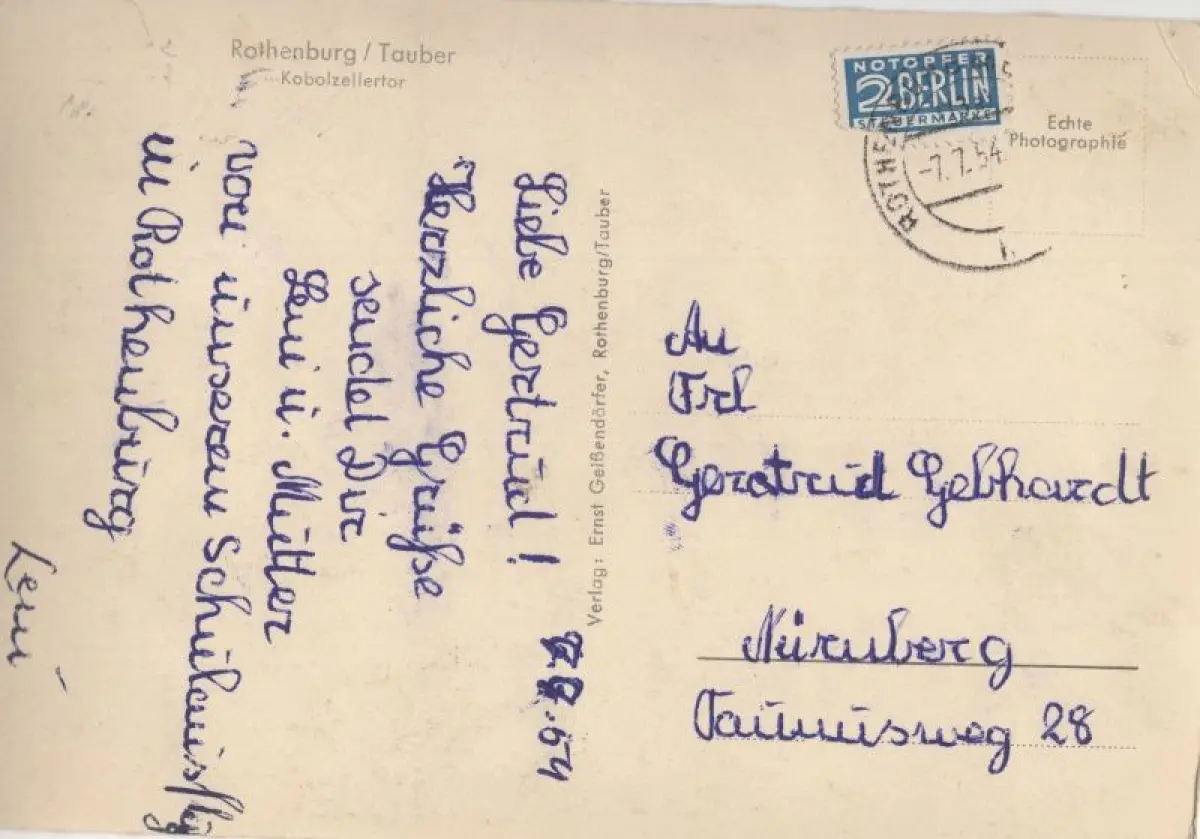 Rothenburg / Tauber
Kobolzellertor
Liebe Gertrud!
Herzliche Grüße
sendet Dir
Leni u. Mutter
von unserem Schulausflug
in Rothenburg
Leni
Verlag: Ernst Geißendörfer, Rothenburg/Tauber
NOTOPFER
2 BERLIN
STEUERMARKE
-7.7.54
Echte
Photographie
An
Frl
Gertrud Gebhardt
Nürnberg
Taunusweg 28